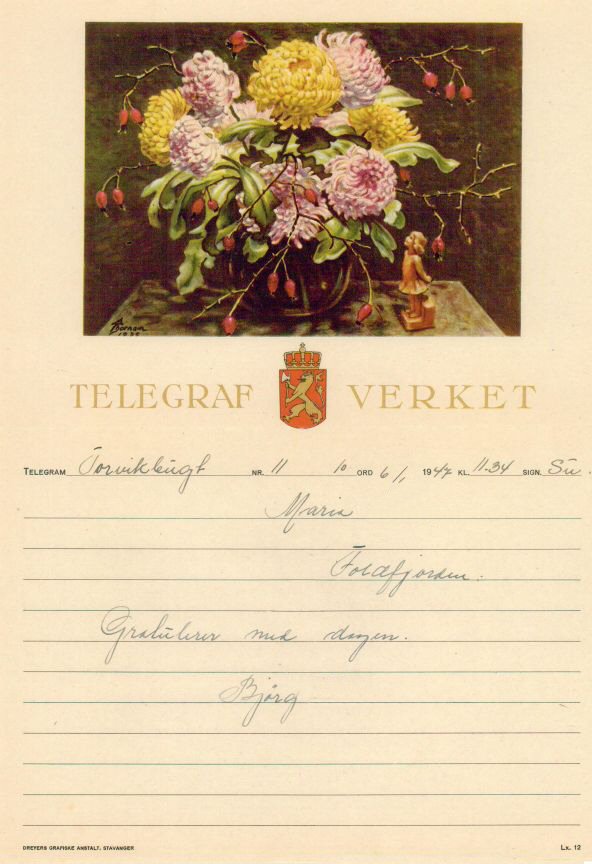 1935
TELEGRAF VERKET
TELEGRAM Torvikbugt NR. 11 10 ORD 6/1 1947 KL. 11-34 SIGN. Su.
Maria
Foldfjorden.
Gratulerer med dagen.
Bjørg
DREYERS GRAFISKE ANSTALT, STAVANGER Lx. 12